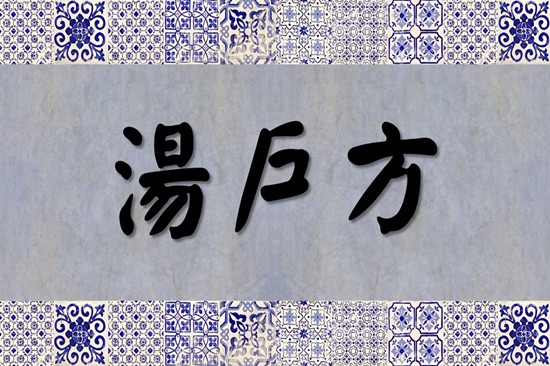 湯戶方